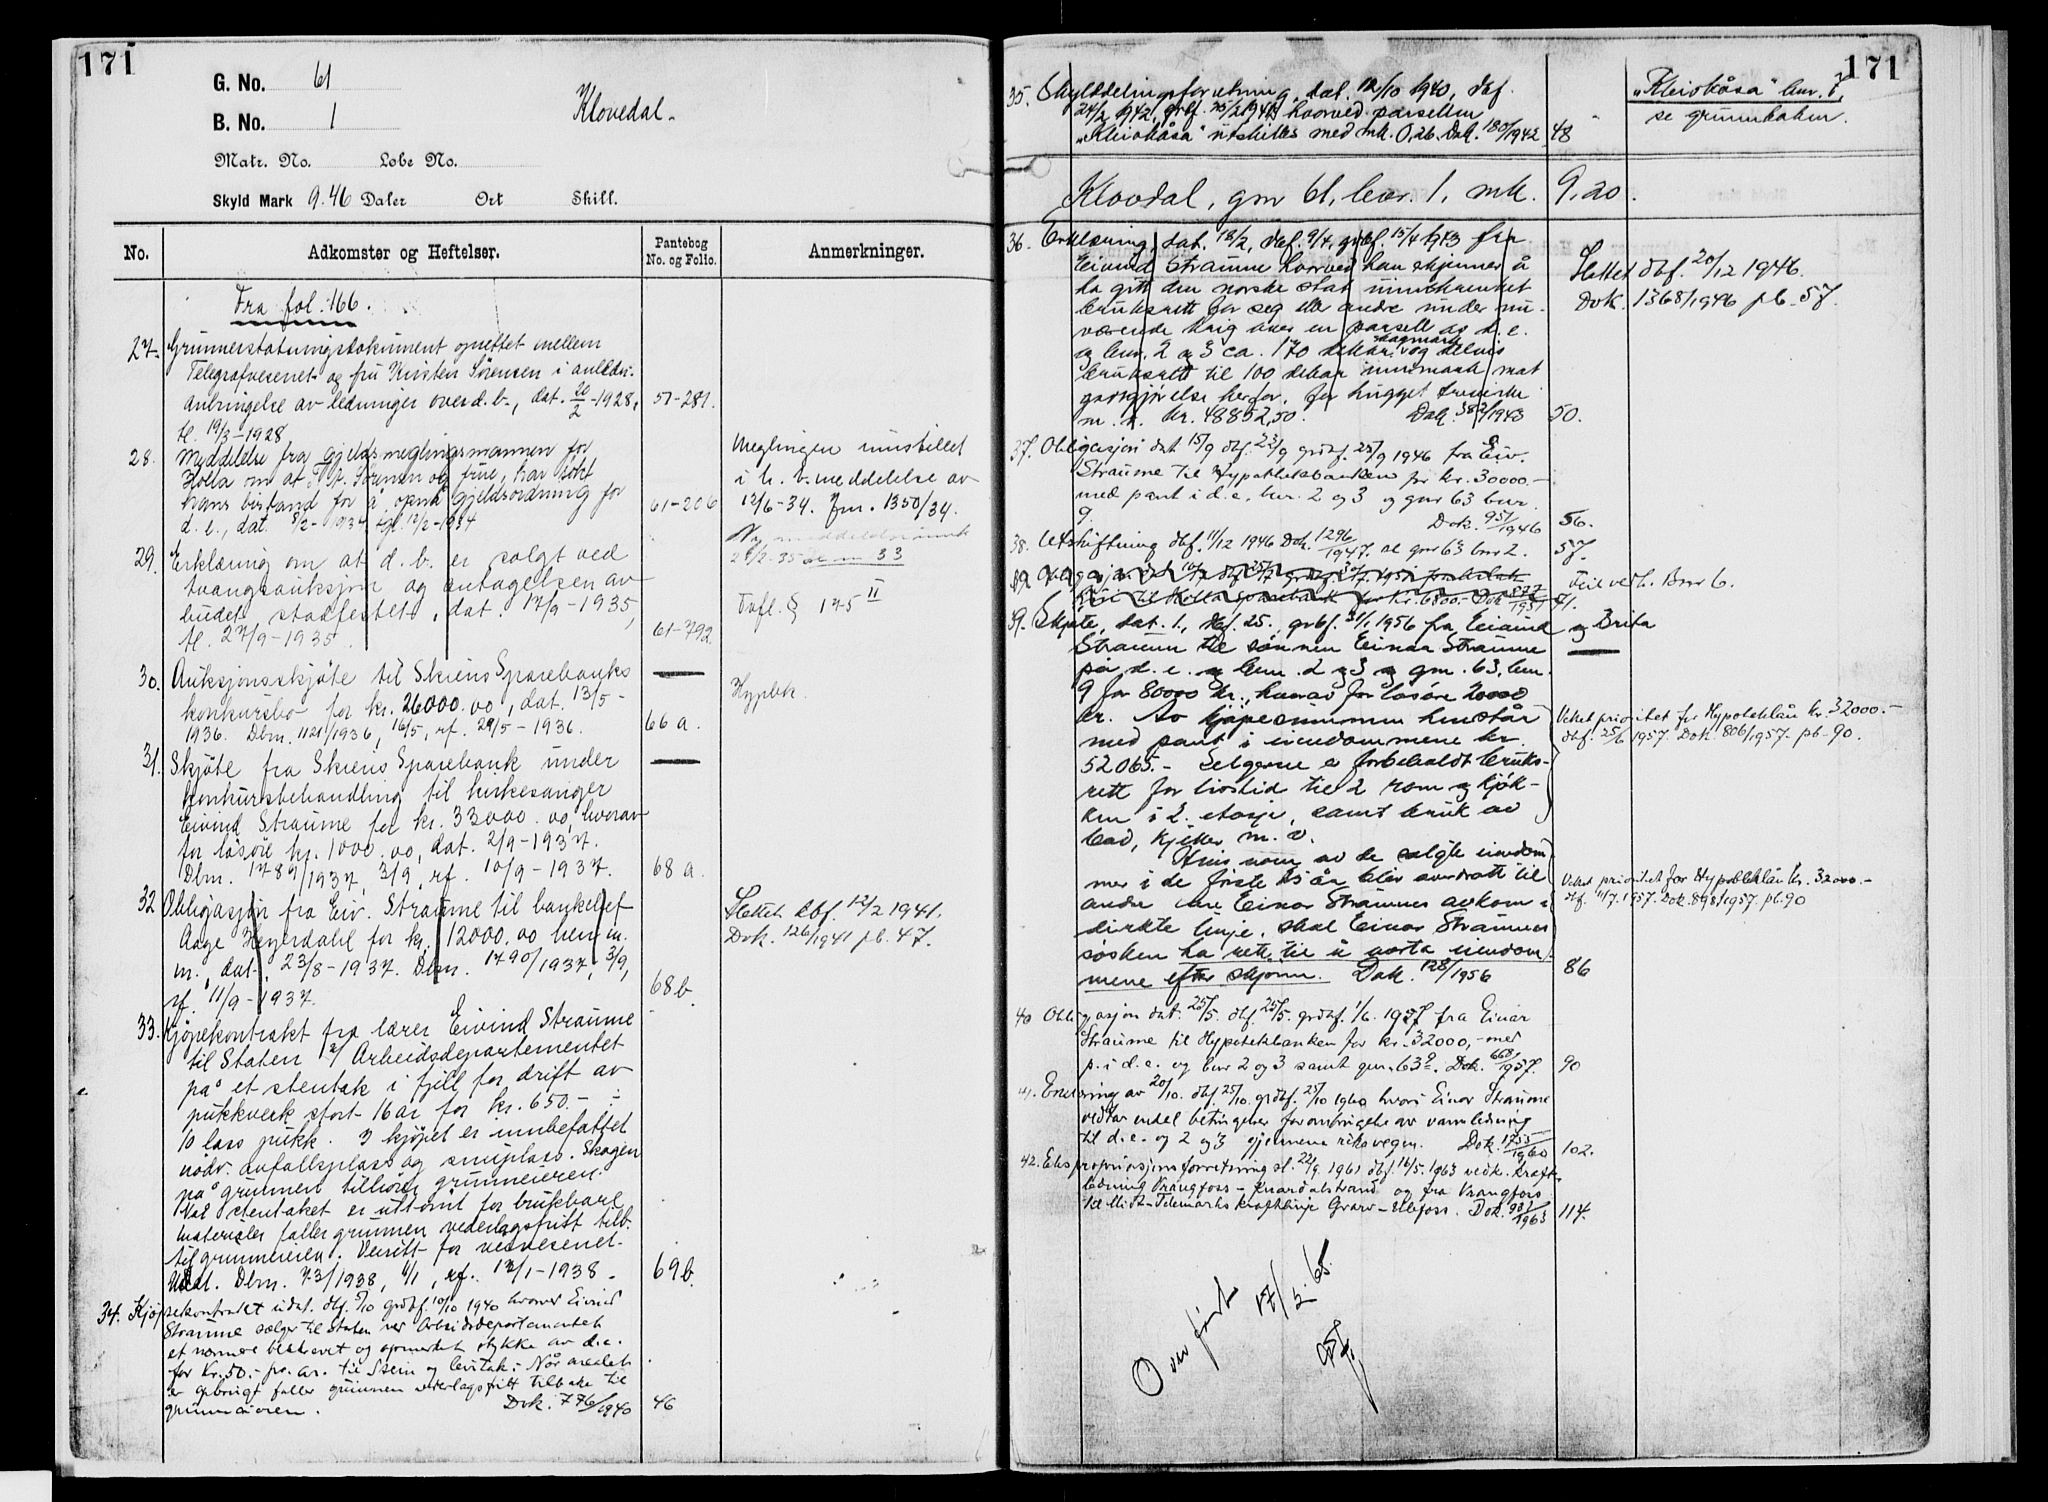 171
G. No. 61
B. No. 1
Klovedal.
Matr. No. Lobe No.
Skyld Mark 9.46 Daler Ort Skill.
No. Adkomster og Heftelser. Pantebog No. og Folio. Anmerkninger.
Fra fol. 166.
27. Grunnerstatningsdokument oprettet mellem
Telegrafvesenet og fru Kirsten Sørensen i anledn.
anbringelse av ledninger over d. b., dat. 20/2-1928, 51-281.
tl. 19/3-1928
28. Meddelelse fra gjeldsmeglingsmannen for
Holla om at Sørensen og frue, har søkt
hans bistand for å opnå gjeldsordning for 61-206
d. e., dat. 8/2-1934 tgl. 12/2-1934
Meglingen innstillet
i h. t. meddelelse av
12/6-34. Jnr. 1350/34.
29. Erklæring om at d. b. er solgt ved
tvangsauksjon og antagelsen av
budet stadfestet, dat. 17/9-1935,
tl. 27/9-1935. 61-792.
Tvfl. § 175 II
30. Auksjonsskjøte til Skiens Sparebanks
konkursbo for kr. 26000.00, dat. 13/5-
1936. Dbm. 1121/1936, 16/5, rf. 29/5-1936. 66 a.
Hypbk.
31. Skjøte fra Skiens Sparebank under
konkursbehandling til kirkesanger
Eivind Straume for kr. 33000.00, hvorav
for løsøre kr. 1000.00, dat. 2/9-1937.
Dbm. 1789/1937, 3/9, rf. 10/9-1937. 68 a.
32 Obligasjon fra Eiv. Straume til bankchef
Aage Heyerdahl for kr. 12000.00
m. dat. 23/8-1937. Dbm. 1790/1937, 3/9,
rf. 11/9-1937. 68 b.
Slettet dbf. 12/2 1941.
Dok. 126/1941 pb. 47.
33. Kjøpekontrakt fra lærer Eivind Straume
til Staten v/ Arbeidsdepartementet
på et stentak i fjell for drift av
pukkverk stort 16 ar for kr. 650.-
10 lass pukk. I kjøpet er innbefattet
nødv. avfallsplass og snuplass. Skogen
på grunnen tilhører grunneieren.
Når stentaket er uttømt for brukbare
materialer faller grunnen vederlagsfritt tilb.
til grunneieren. Veirett for veivesenet.
Udat. Dbm. 73/1938, 11/1, rf. 12/1-1938. 69 b.
34. Kjøpekontrakt udat. dbf. 5/10 grdbf. 10/10 1940 hvorved Eivind
Straume selger til Staten ved Arbeidsdepartementet
et nærmere beskrevet og opmerket stykke av d.e.
for kr. 50.- pr. ar. til Stein og
er opbrugt faller grunnen vederlagsfritt tilbake til
grunneieren. Dok. 776/1940 46
171
35. Skylddelingsforretning, dat. 12/10 1940, dbf.
24/2 1942, grbf. 25/2 1942 hvorved parsellen
"Kleivkåsa" utskilles med mk. 0,26. Dok. 180/1942 48
"Kleivkåsa" bnr. 7,
se grunnboken.
Klovdal, gnr 61, bnr. 1, mk. 9,20.
36. Erklæring, dat. 18/2, dbf. 9/4, grbf. 15/4 1943 fra
Eivind Straume hvorved han skjønner å
ha gitt den norske stat innskrenket
bruksrett for seg eller andre under nu-
værende krig over en parsell av d. e.
og bnr. 2 og 3 ca. 170 dekar skogmark og delvis
bruksrett til 100 dekar innmark mot
godtgjørelse herfor, for hugget trevirke
m. v. kr. 48852,50. Dok. 383/1943 50.
Slettet dbf. 20/12 1946.
Dok. 1368/1946 pb. 57.
37. Obligasjon dat 15/9 dbf. 23/9 grdbf. 25/9 1946 fra Eiv.
Straume til Hypotekbanken for kr. 30000.-
med pant i d.e., bnr. 2 og 3 og gnr 63 bnr
9. Dok. 951/1946 56.
38. Utskiftning dbf. 11/12 1946 Dok. 1296/1947. se gnr 63 bnr 2. 57.
Holla Sparebank for kr. 6800.- Dok 877/1951 71.
Feil vedk. Bnr 6.
39. Skjøte, dat. 1., dbf. 25., grbf. 31/1 1956 fra Eivind og Brita
Straume til sønnen Einar Straume
på d. e. og bnr. 2 og 3 og gnr. 63, bnr.
9 for 80000 kr., hvorav for løsøre 20000
kr. Av kjøpesummen henstår
med pant i eiendommene kr.
52065.- Selgerne er forbeholdt bruks-
rett for livstid til 2 rom og kjøk-
ken i 2. etasje, samt bruk av
bad, kjeller m. v.
Hvis noen av de solgte eiendom-
mer i de første 25 år blir avendratt til
andre enn Einar Straumes avkom i
direkte linje, skal Einar Straumes
søsken ha rett til å overta eiendom-
mene efter skjønn. Dok. 128/1956 86
Veket prioritet for Hypoteklån kr. 32000.-
dbf. 25/6 1957. Dok. 806/1957. pb. 90.
Veket prioritet for Hypoteklån kr. 32000.-
dbf. 11/7. 1957. Dok. 898/1957. pb. 90
40 Obligasjon dat. 25/5. dbf. 25/5. grdbf. 1/6. 1957 fra Einar
Straume til Hypotekbanken for kr. 32000,- med
p. i d.e. og bnr 2 og 3 samt gnr. 63 9. Dok. 668/1957. 90
41. Erklæring av 20/10. dbf. 25/10. grdbf. 25/10 1960 hvori Einar Straume
vedtar endel betingelser for anbringelse av vannledning
til d.e. og 2 og 3 gjennem riksvegen. Dok. 1755/1960 102.
42. Ekspropriasjonsforretning sl. 22/9. 1961 dbf. 16/5. 1963 vedk. kraft-
ledning Vrangfoss - Knardalstrand og fra Vrangfoss
til Midt-Telemarks kraftlinje Gvarv - Ulefoss. Dok. 937/1963 114.
Overført 17/2 65.